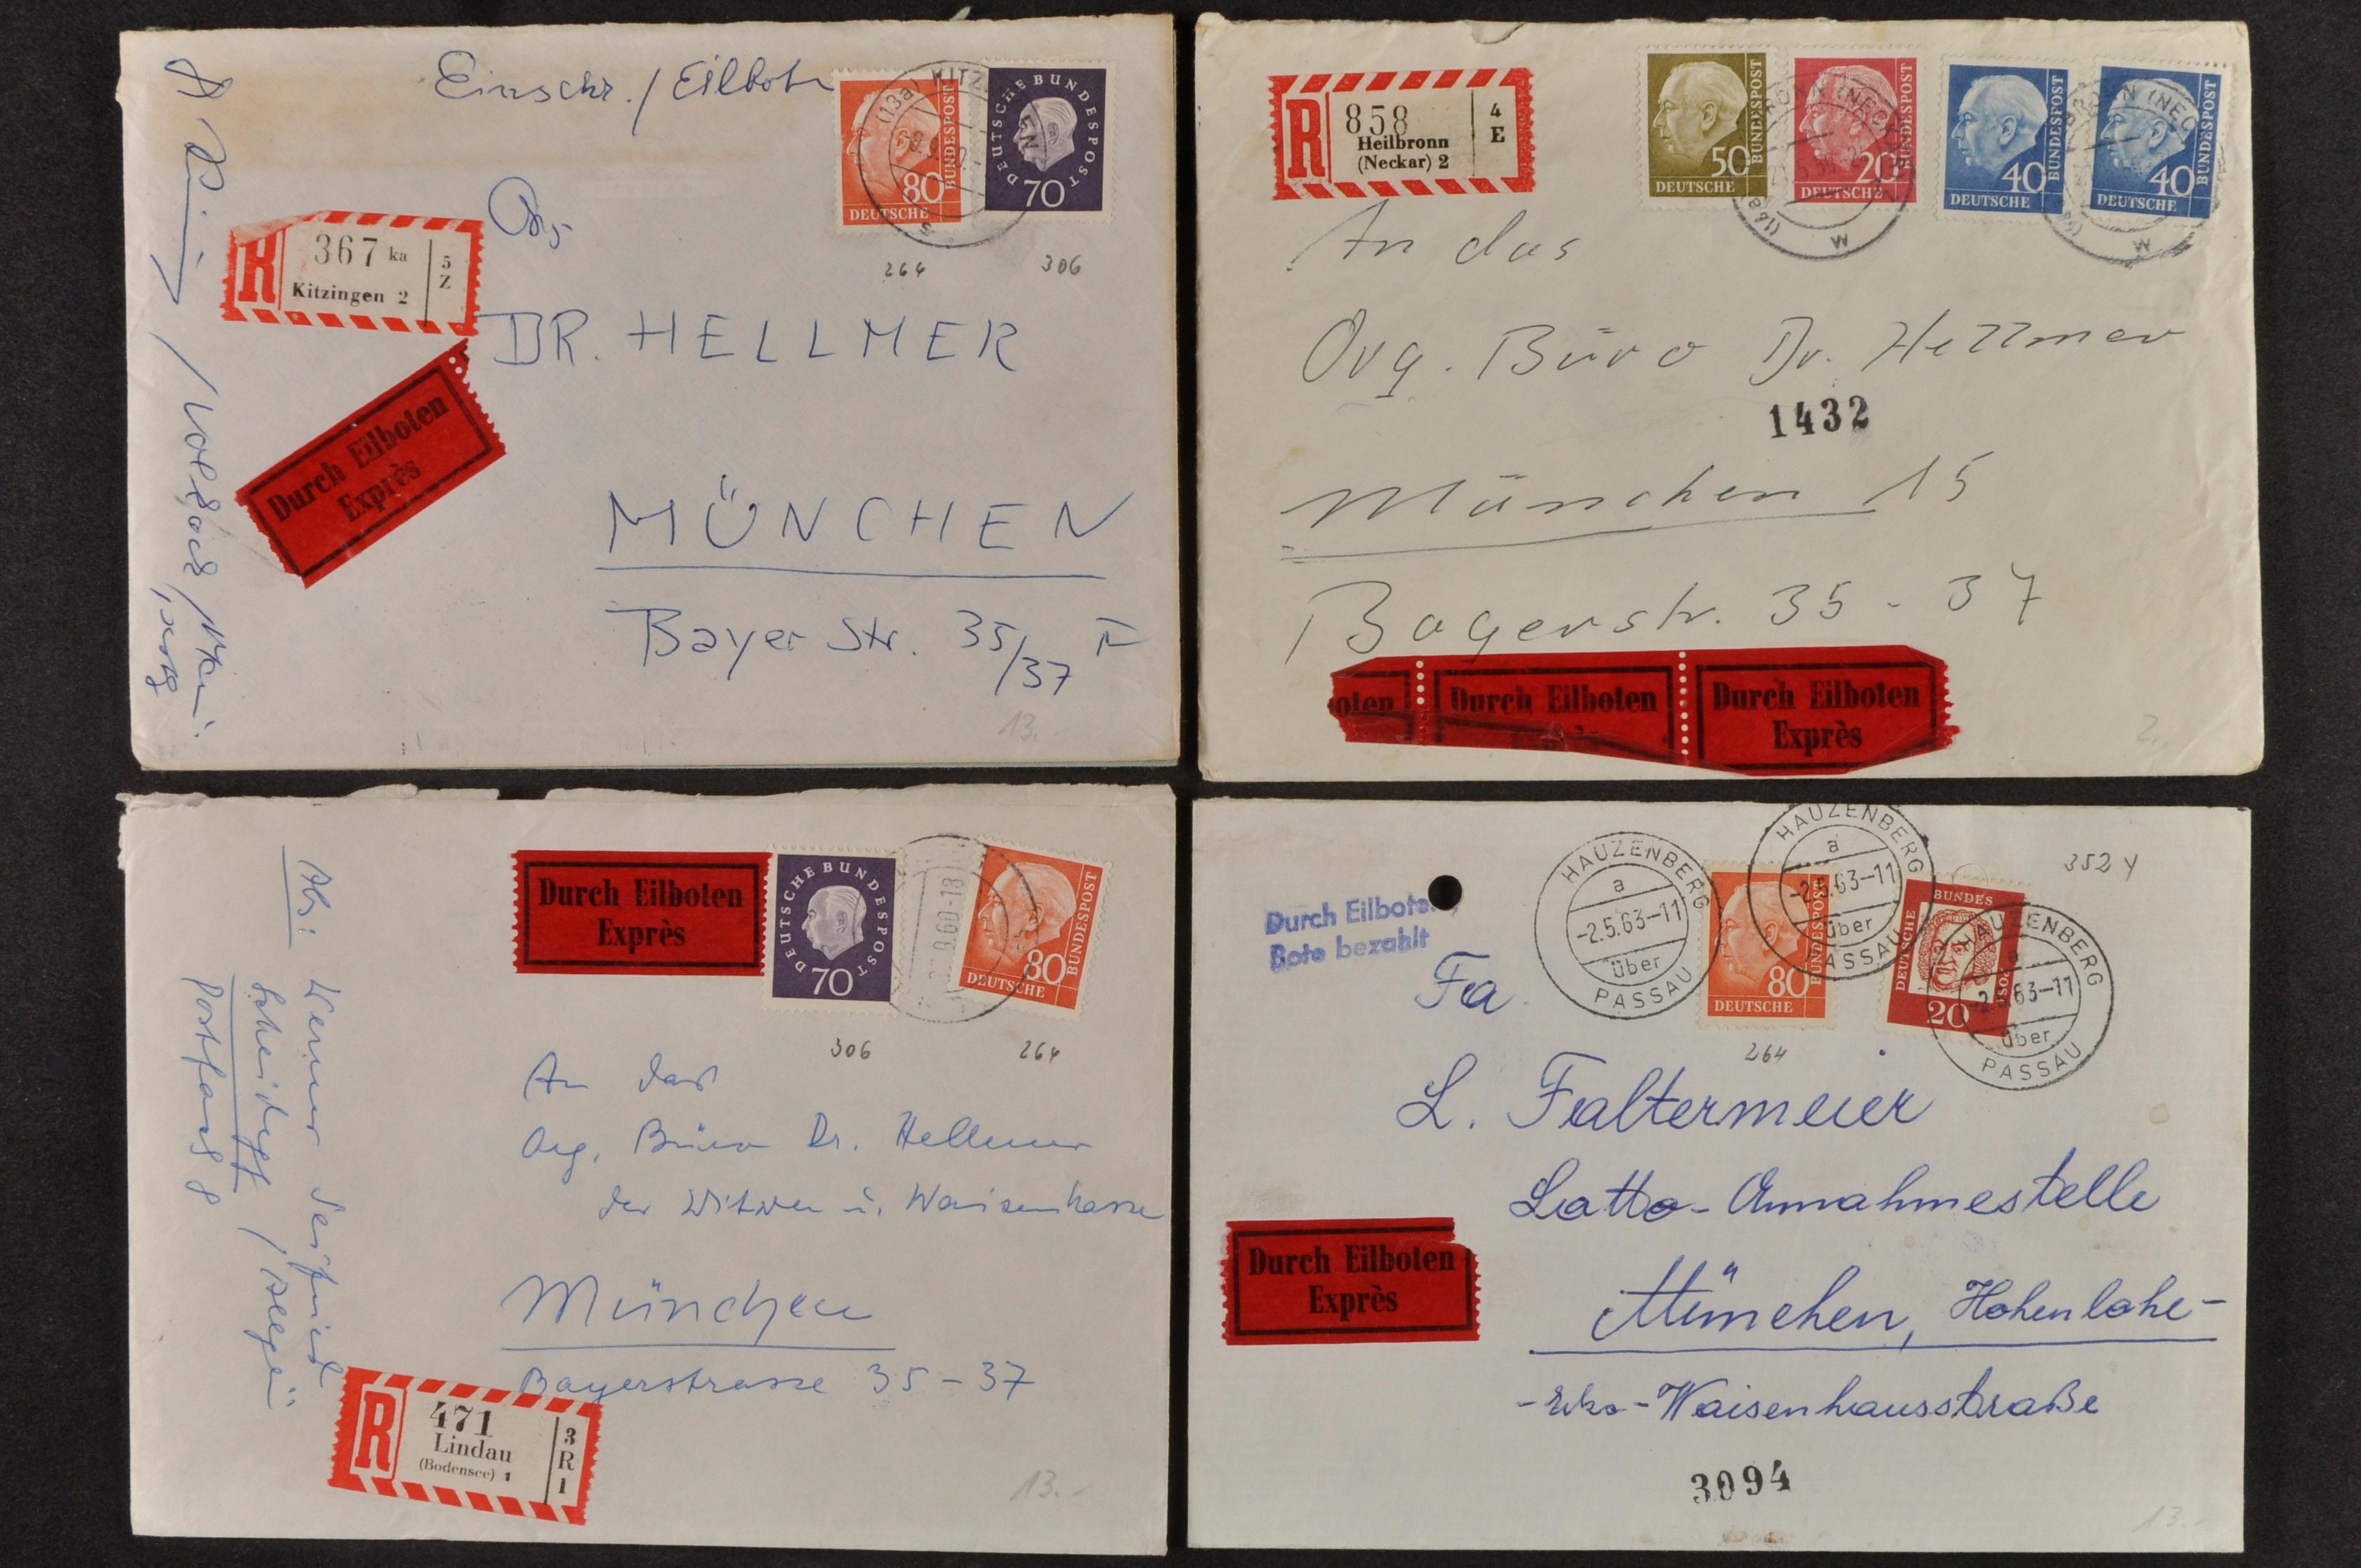 Einschr. / Eilbote
(13a) KITZ
80
DEUTSCHE
BUNDESPOST
DEUTSCHE BUNDESPOST
70
264
306
R
367 ka
Kitzingen 2
5
Z
DR. HELLMER
Durch Eilboten
Exprès
MÜNCHEN
Bayer Str. 35/37
13.-
R
858
Heilbronn
(Neckar) 2
4
E
50
DEUTSCHE
BUNDESPOST
20
DEUTSCHE
BUNDESPOST
40
DEUTSCHE
BUNDESPOST
40
DEUTSCHE
BUNDESPOST
w
w
An das
Org. Büro Dr. Hellmer
1432
München 15
Bayerstr. 35 - 37
oten
Durch Eilboten
Durch Eilboten
Exprès
2.
Durch Eilboten
Exprès
DEUTSCHE BUNDESPOST
70
9.60-18
80
DEUTSCHE
BUNDESPOST
306
264
Abs:
Werner Seifried
Scheidegg / Allgäu
Postfach 8
An das
Org. Büro Dr. Hellmer
der Witwen u. Waisenkasse
München
Bayerstrasse 35-37
R
471
Lindau
(Bodensee) 1
3
R
1
13.-
Durch Eilboten
Bote bezahlt
HAUZENBERG
a
-2.5.63-11
über
PASSAU
HAUZENBERG
a
-2.5.63-11
über
PASSAU
80
DEUTSCHE
BUNDESPOST
BUNDES
DEUTSCHE
POST
20
HAUZENBERG
a
-2.5.63-11
über
PASSAU
352 Y
264
Fa.
L. Faltermeier
Lotto-Annahmestelle
München, Hohenlohe-
Ecke-Waisenhausstraße
Durch Eilboten
Exprès
3094
13.-